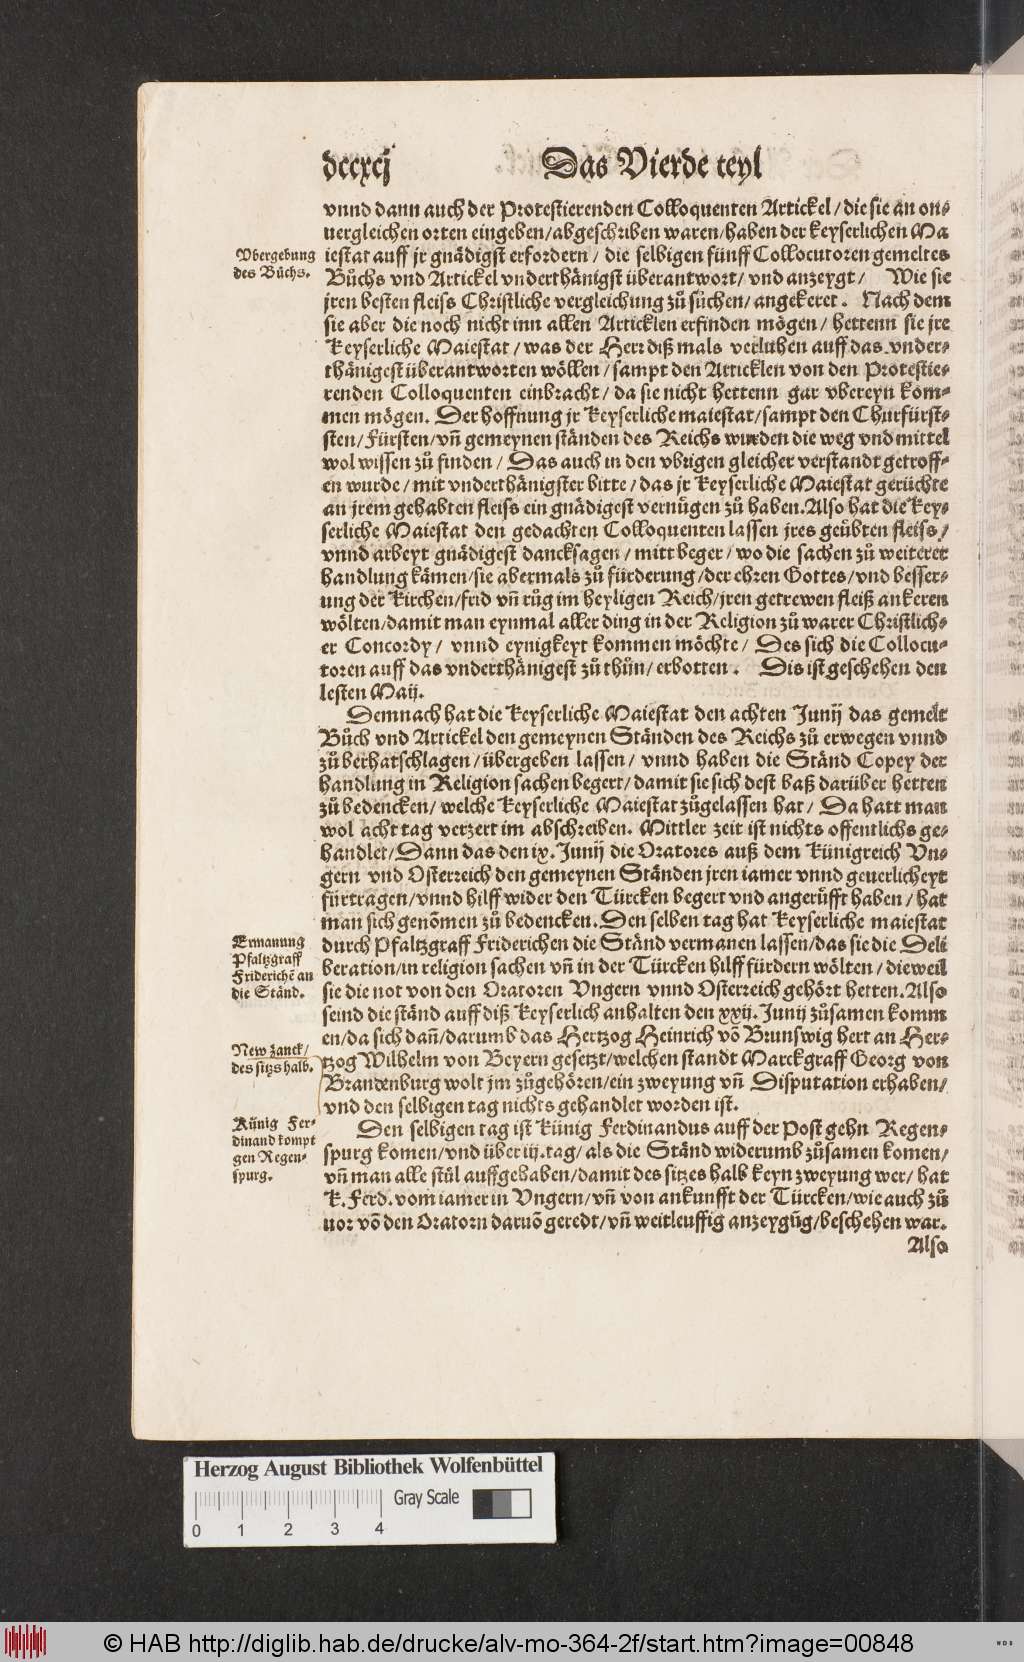 dccxcij
Das Vierde teyl
vnnd dann auch der Protestierenden Colloquenten Artickel / die sie an on⸗
uergleichen orten eingeben/abgeschriben waren/haben der keyserlichen Ma
iestat auff jr gnädigst erfordern / die selbigen fünff Collocutoren gemeltes
Bůchs vnd Artickel vnderthänigst überantwort/ vnd anzeygt / Wie sie
jren besten fleiss Christliche vergleichung zů sůchen/ angekeret. Nach dem
sie aber die noch nicht inn allen Articklen erfinden mögen / hettenn sie jre
Keyserliche Maiestat / was der Herr diß mals verluhen auff das vnder⸗
thänigest überantworten wöllen / sampt den Articklen von den Protestie⸗
renden Colloquenten einbracht / da sie nicht hettenn gar vbereyn kom⸗
men mögen. Der hoffnung jr Keyserliche maiestat/sampt den Churfürst⸗
sten/ Fürsten/ vn̄ gemeynen ständen des Reichs wurden die weg vnd mittel
wol wissen zů finden / Das auch in den vbrigen gleicher verstandt getroff⸗
en wurde / mit vnderthänigster bitte / das jr Keyserliche Maiestat gerüchte
an jrem gehabten fleiss ein gnädigest vernügen zů haben. Also hat die Key⸗
serliche Maiestat den gedachten Colloquenten lassen jres geübten fleiss /
vnnd arbeyt gnädigest dancksagen / mitt beger / wo die sachen zů weiterer
handlung kämen/sie abermals zů fürderung/der ehren Gottes/vnd besser⸗
ung der Kirchen/frid vn̄ růg im heyligen Reich/jren getrewen fleiß ankeren
wölten/damit man eynmal aller ding in der Religion zů warer Christlich⸗
er Concordy / vnnd eynigkeyt kommen möchte / Des sich die Collocu⸗
toren auff das vnderthänigest zů thůn/ erbotten. Dis ist geschehen den
lesten Maij.
Demnach hat die Keyserliche Maiestat den achten Junij das gemelt
Bůch vnd Artickel den gemeynen Ständen des Reichs zů erwegen vnnd
zů berhatschlagen / übergeben lassen / vnnd haben die Ständ Copey der
handlung in Religion sachen begert/ damit sie sich dest baß darüber hetten
zů bedencken/ welche Keyserliche Maiestat zůgelassen hat / Da hatt man
wol acht tag verzert im abschreiben. Mittler zeit ist nichts offentlichs ge⸗
handlet/Dann das den ix. Junij die Oratores auß dem Künigreich Vn⸗
gern vnd Osterreich den gemeynen Ständen jren iamer vnnd geuerlicheyt
fürtragen/vnnd hilff wider den Türcken begert vnd angerůfft haben / hat
man sich genōmen zů bedencken. Den selben tag hat Keyserliche maiestat
durch Pfaltzgraff Friderichen die Ständ vermanen lassen/das sie die Deli
beration/in religion sachen vn̄ in der Türcken hilff fürdern wölten / dieweil
sie die not von den Oratoren Vngern vnnd Osterreich gehört hetten. Also
seind die ständ auff diß Keyserlich anhalten den xxij. Junij zůsamen komm
en/da sich dan̄/darumb das Hertzog Heinrich vō Brunswig hert an Her⸗
tzog Wilhelm von Beyern gesetzt/welchen standt Marckgraff Georg von
Brandenburg wolt jm zůgehören/ein zweyung vn̄ Disputation erhaben/
vnd den selbigen tag nichts gehandlet worden ist.
Den selbigen tag ist Künig Ferdinandus auff der Post gehn Regen⸗
spurg komen/vnd über iij. tag/ als die Ständ widerumb zůsamen komen/
vn̄ man alle stůl auffgehaben/damit des sitzes halb keyn zweyung wer/ hat
K. Ferd. vom iamer in Vngern/ vn̄ von ankunfft der Türcken/wie auch zů
uor vō den Oratorn daruō geredt/ vn̄ weitleuffig anzeygūg/beschehen war.
Also
Vbergebung
des Bůchs.
Ermanung
Pfaltzgraff
Friderichē an
die Ständ.
New zanck/
des sitzs halb.
Künig Fer⸗
dinand kompt
gen Regen⸗
spurg.
Herzog August Bibliothek Wolfenbüttel
Gray Scale
0 1 2 3 4
© HAB http://diglib.hab.de/drucke/alv-mo-364-2f/start.htm?image=00848